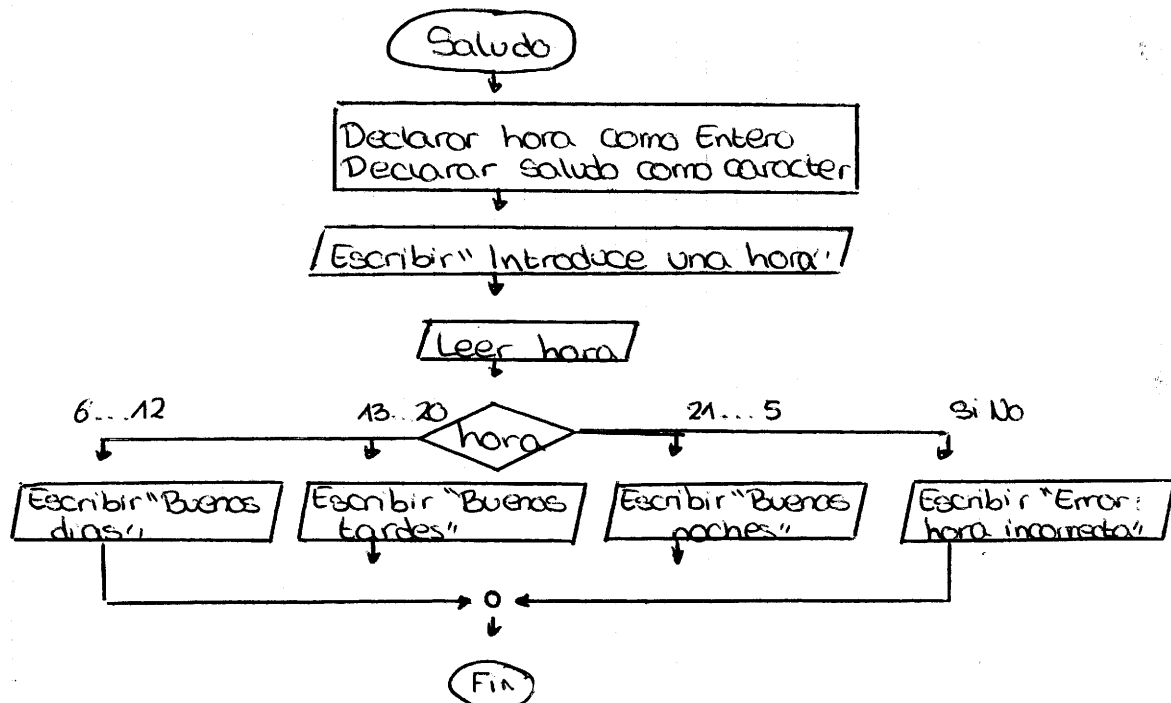 Saludo
Declarar hora como Entero
Declarar saludo como caracter
Escribir" Introduce una hora"
Leer hora
6...12
13...20
hora
21...5
Si No
Escribir "Buenos
dias"
Escribir "Buenas
tardes"
Escribir "Buenas
noches"
Escribir "Error:
hora incorrecta"
Fin